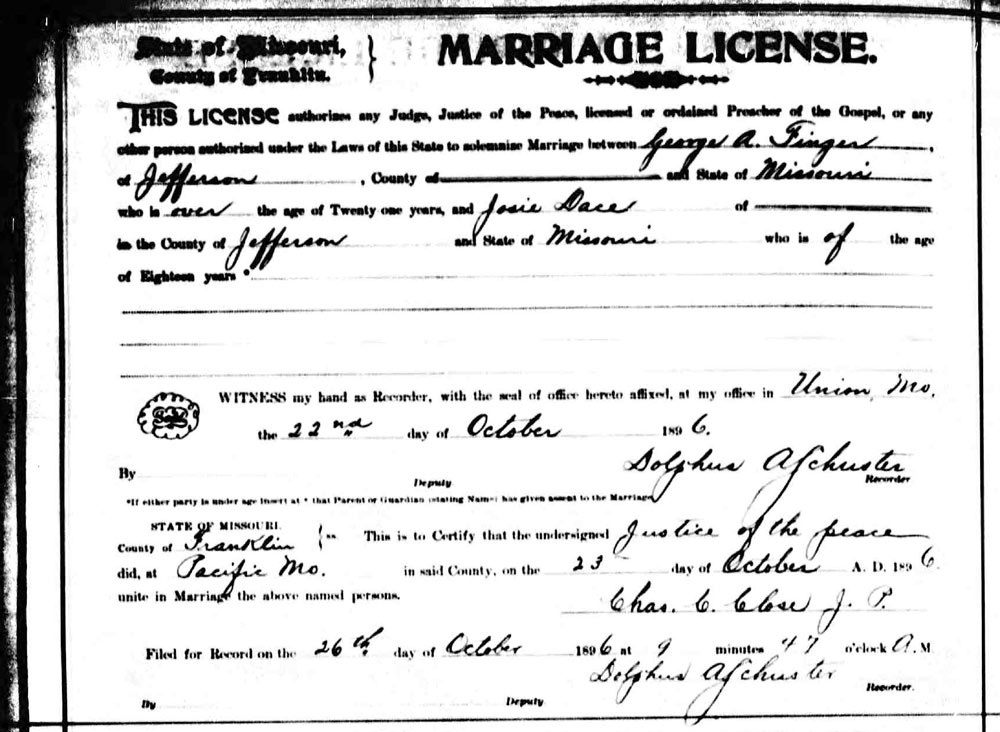 State of Missouri, } MARRIAGE LICENSE.
County of Franklin.
THIS LICENSE authorizes any Judge, Justice of the Peace, licensed or ordained Preacher of the Gospel, or any
other person authorized under the Laws of this State to solemnize Marriage between George A. Finger,
of Jefferson, County of and State of Missouri
who is over the age of Twenty-one years, and Josie Dace of
in the County of Jefferson and State of Missouri who is of the age
of Eighteen years *
WITNESS my hand as Recorder, with the seal of office hereto affixed, at my office in Union, Mo.
the 22nd day of October 1896.
Dolphus A Schuster
By Deputy Recorder
*If either party is under age insert at * that Parent or Guardian (stating Name) has given assent to the Marriage
STATE OF MISSOURI.
County of Franklin } ss This is to Certify that the undersigned Justice of the peace
did, at Pacific Mo. in said County, on the 23 day of October A. D. 1896
unite in Marriage the above named persons.
Chas. C. Close J. P.
Filed for Record on the 26th day of October 1896 at 9 minutes 47 o'clock A. M
Dolphus A Schuster
By Deputy Recorder.